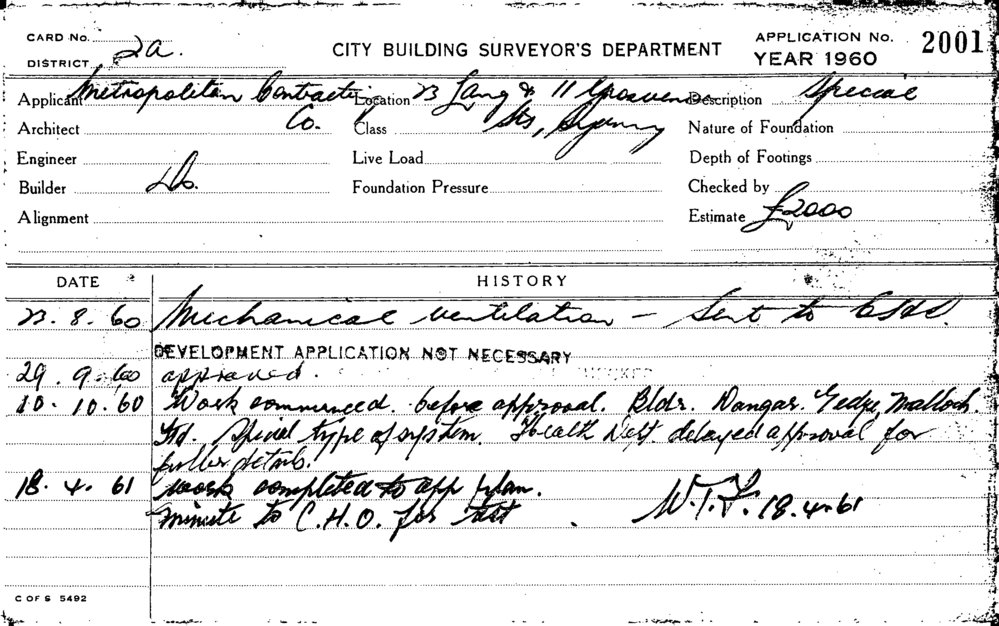 CARD NO.
DISTRICT 2a.
CITY BUILDING SURVEYOR'S DEPARTMENT
APPLICATION No. 2001
YEAR 1960
Applicant Metropolitan Contracting Co.
Location 23 Lang & 11 Grosvenor Sts, Sydney
Description Special
Architect
Class
Nature of Foundation
Engineer
Live Load
Depth of Footings
Builder Do.
Foundation Pressure
Checked by
Alignment
Estimate £2000
DATE HISTORY
23. 8. 60 Mechanical ventilation - Sent to
DEVELOPMENT APPLICATION NOT NECESSARY
29. 9. 60 approved.
10. 10. 60 Work commenced before approval. Bldr. Dangar, Gedye, Malloch
Ltd. Special type of system. Health Dept delayed approval for
fuller details.
18. 4. 61 Work completed to app plan.
Minute to C.H.O. for test W.T.F. 18.4.61
C OF S 5492